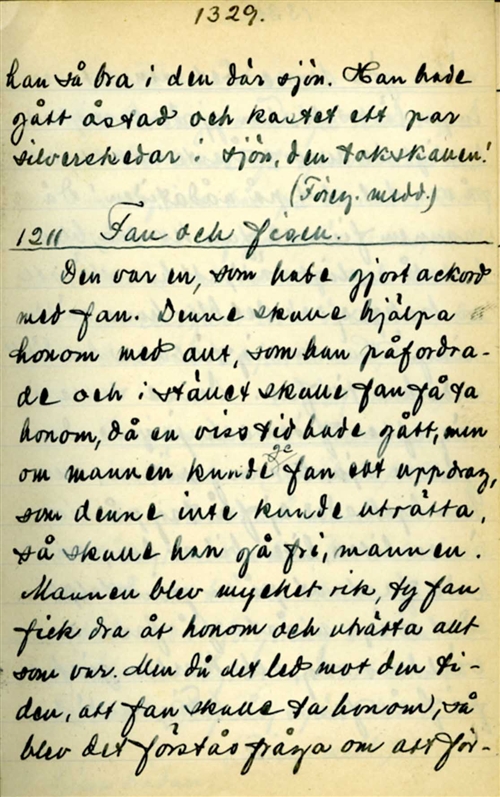 1329.
han så bra i den där sjön. Han hade
gått åstad och kastet ett par
silverskedar i sjön, den tokskallen!
(Föreg. medd.)
1211 Fan och fisen.
Den var en, som hade gjort ackord
med fan. Denne skulle hjälpa
honom med allt, som han påfordra-
de och i stället skulle fan få ta
honom, då en viss tid hade gått, men
om mannen kunde ge fan ett uppdrag,
som denne inte kunde uträtta,
så skulle han gå fri, mannen.
Mannen blev mycket rik, ty fan
fick dra åt honom och uträtta allt
som var. Men då det led mot den ti-
den, att fan skulle ta honom, så
blev det förstås fråga om att för-